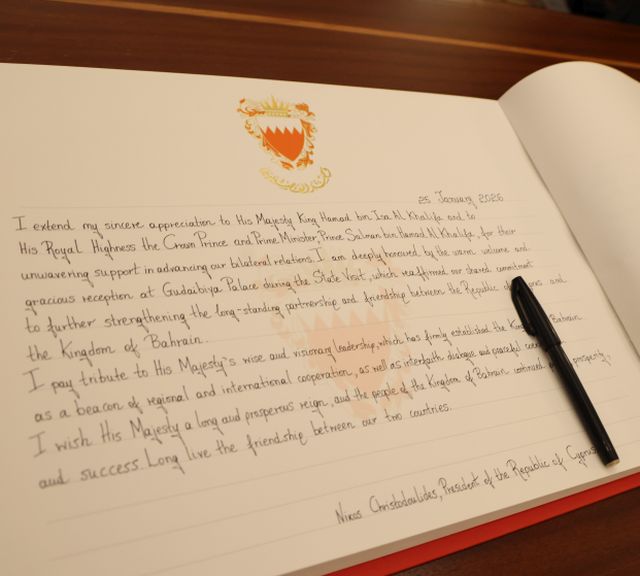 25 January 2026
I extend my sincere appreciation to His Majesty King Hamad bin Isa Al Khalifa and to
His Royal Highness the Crown Prince and Prime Minister, Prince Salman bin Hamad Al Khalifa, for their
unwavering support in advancing our bilateral relations. I am deeply honoured by the warm welcome and
gracious reception at Gudaibiya Palace during the State Visit, which reaffirmed our shared commitment
to further strengthening the long-standing partnership and friendship between the Republic of and
the Kingdom of Bahrain.
I pay tribute to His Majesty's wise and visionary leadership, which has firmly established the Bahrain
as a beacon of regional and international cooperation, as well as interfaith dialogue and peaceful
I wish His Majesty a long and prosperous reign, and the people of the Kingdom of Bahrain continued prosperity,
and success. Long live the friendship between our two countries.
Nikos Christodoulides, President of the Republic of Cyprus